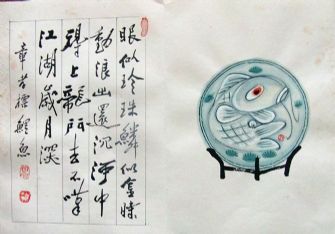 眼似珍珠鱗似金時
動浪出還沉河中
得上龍門去不嘆
江湖歲月深
章孝標鯉魚